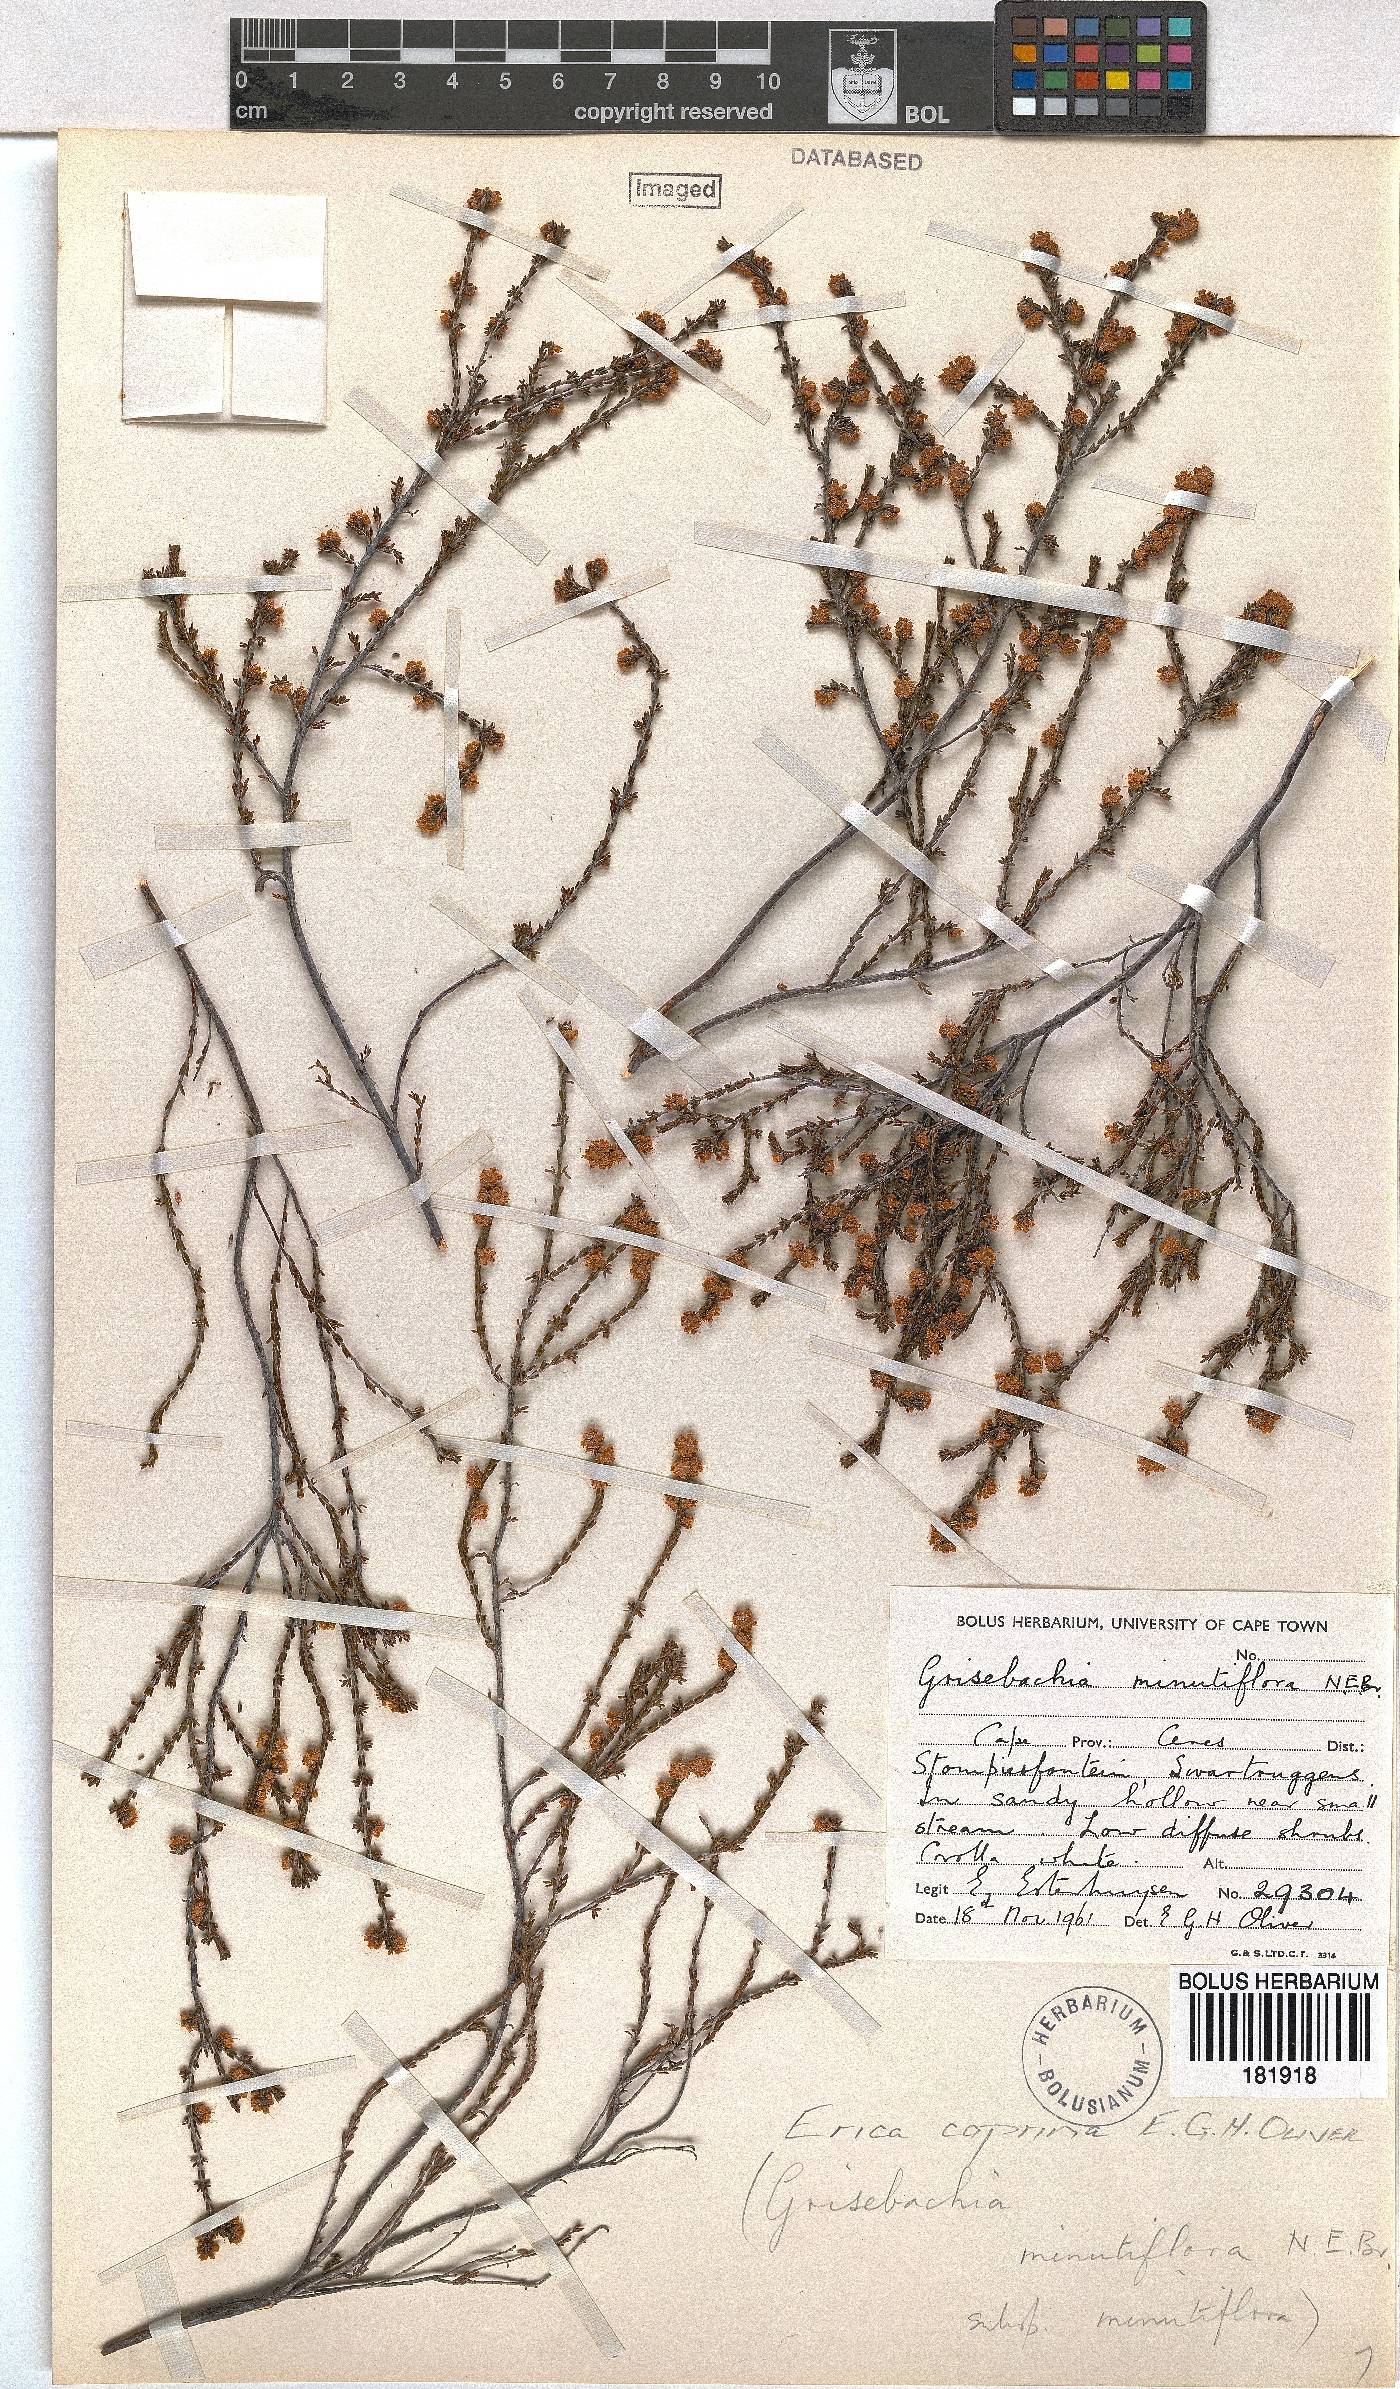 0 1 2 3 4 5 6 7 8 9 10
cm copyright reserved BOL
DATABASED
Imaged
BOLUS HERBARIUM, UNIVERSITY OF CAPE TOWN
No.
Grisebachia minutiflora N.E.Br.
Cape Prov.: Ceres Dist.:
Stompiesfontein, Swartruggens.
In sandy hollow near small
stream. Low diffuse shrubs.
Corolla white. Alt.
Legit E. Esterhuysen No. 29304
Date 18th Nov 1961 Det. E G H Oliver
G. & S. LTD. C.T. 3314
BOLUS HERBARIUM
181918
HERBARIUM BOLUSIANUM
Erica E. G. H. OLIVER
(Grisebachia
minutiflora N. E. Br.
subsp. minutiflora)